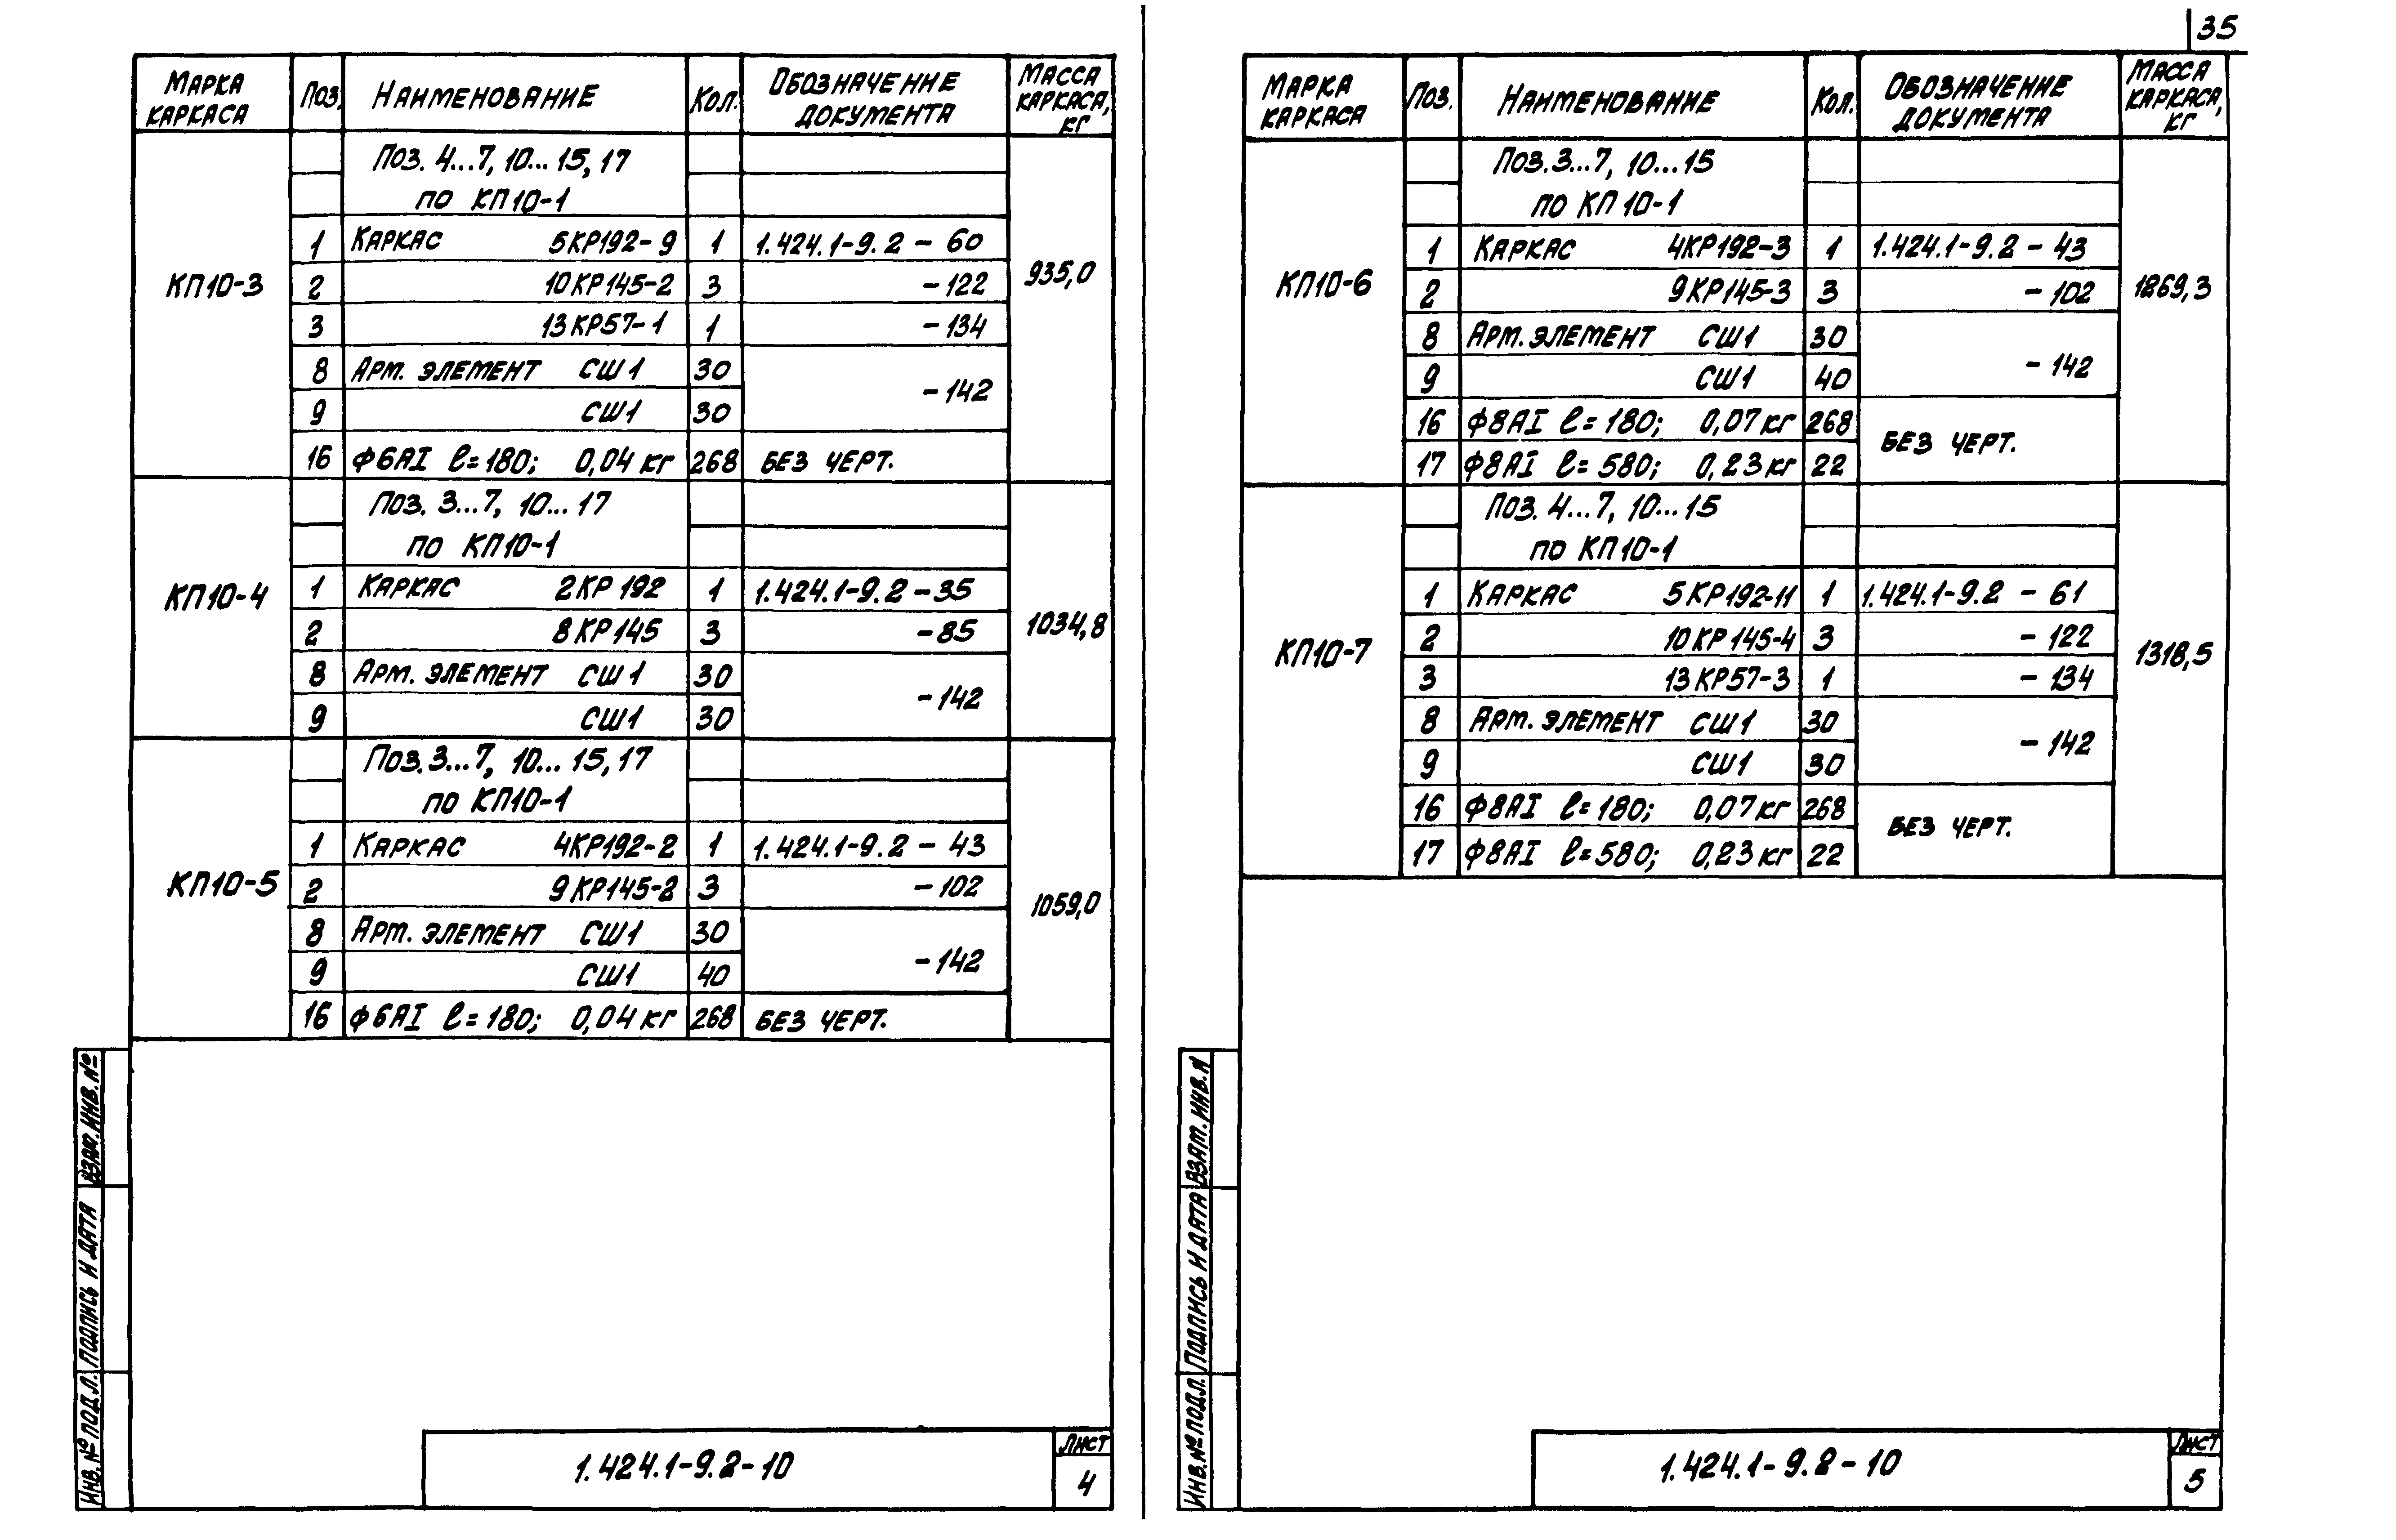 35
МАРКА КАРКАСА ПОЗ. НАИМЕНОВАНИЕ КОЛ. ОБОЗНАЧЕНИЕ ДОКУМЕНТА МАССА КАРКАСА, КГ
ПОЗ. 4...7, 10...15, 17
ПО КП10-1
КП10-3 935,0
1 КАРКАС 5КР192-9 1 1.424.1-9.2-60
2 10КР145-2 3 -122
3 13КР57-1 1 -134
8 АРМ. ЭЛЕМЕНТ СШ1 30
-142
9 СШ1 30
16 Ф6АI ℓ=180; 0,04 кг 268 БЕЗ ЧЕРТ.
ПОЗ. 3...7, 10...17
ПО КП10-1
КП10-4 1034,8
1 КАРКАС 2КР192 1 1.424.1-9.2-35
2 8КР145 3 -85
8 АРМ. ЭЛЕМЕНТ СШ1 30
-142
9 СШ1 30
ПОЗ. 3...7, 10...15, 17
ПО КП10-1
КП10-5 1059,0
1 КАРКАС 4КР192-2 1 1.424.1-9.2-43
2 9КР145-2 3 -102
8 АРМ. ЭЛЕМЕНТ СШ1 30
-142
9 СШ1 40
16 Ф6АI ℓ=180; 0,04 кг 268 БЕЗ ЧЕРТ.
ИНВ. № ПОДЛ. ПОДПИСЬ И ДАТА ВЗАМ. ИНВ. №
1.424.1-9.2-10
ЛИСТ
4
МАРКА КАРКАСА ПОЗ. НАИМЕНОВАНИЕ КОЛ. ОБОЗНАЧЕНИЕ ДОКУМЕНТА МАССА КАРКАСА, КГ
ПОЗ. 3...7, 10...15
ПО КП10-1
КП10-6 1269,3
1 КАРКАС 4КР192-3 1 1.424.1-9.2-43
2 9КР145-3 3 -102
8 АРМ. ЭЛЕМЕНТ СШ1 30
-142
9 СШ1 40
16 Ф8АI ℓ=180; 0,07 кг 268
БЕЗ ЧЕРТ.
17 Ф8АI ℓ=580; 0,23 кг 22
ПОЗ. 4...7, 10...15
ПО КП10-1
КП10-7 1318,5
1 КАРКАС 5КР192-11 1 1.424.1-9.2-61
2 10КР145-4 3 -122
3 13КР57-3 1 -134
8 АРМ. ЭЛЕМЕНТ СШ1 30
-142
9 СШ1 30
16 Ф8АI ℓ=180; 0,07 кг 268
БЕЗ ЧЕРТ.
17 Ф8АI ℓ=580; 0,23 кг 22
ИНВ. № ПОДЛ. ПОДПИСЬ И ДАТА ВЗАМ. ИНВ. №
1.424.1-9.2-10
ЛИСТ
5